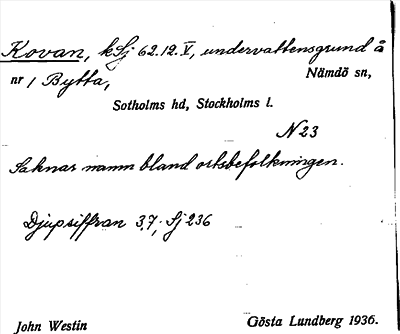 Kovan, kSj 62.12.V, undervattensgrund å
nr 1 Bytta, Nämdö sn,
Sotholms hd, Stockholms l.
N23
Saknar namn bland ortsbefolkningen.
Djupsiffran 3,7; Sj 236
John Westin Gösta Lundberg 1936.